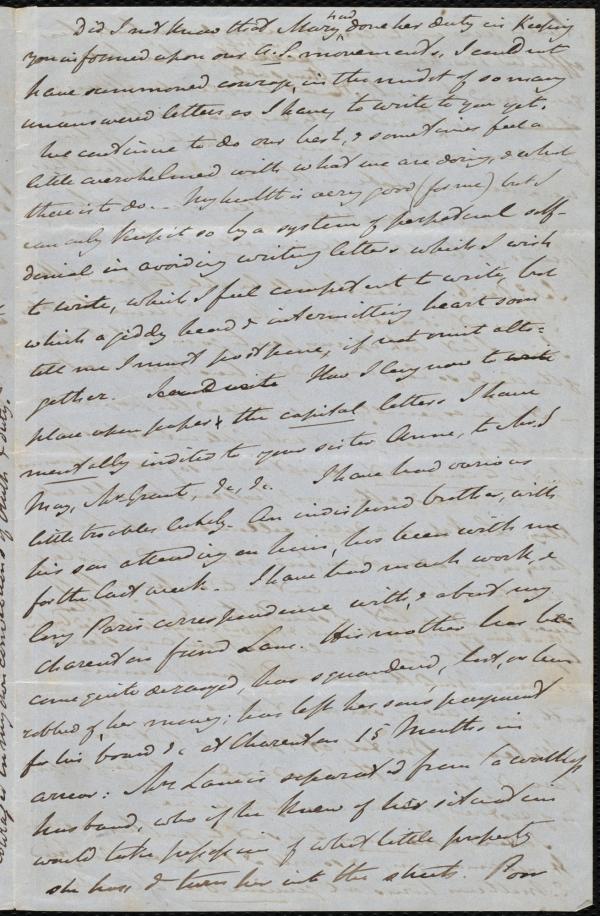 Did I not know that Mary had done her duty in keeping
you informed upon our A.S. movements, I could not
have summoned courage, in the midst of so many
unanswered letters as I have, to write to you yet.
We continue to do our best, & sometimes feel a
little overwhelmed with what we are doing, & what
there is to do. My health is very good (for me) but I
can only keep it so by a system of perpetual self-
denial in avoiding writing letters which I wish
to write, which I feel competent to write, but
which a giddy head & intermitting heart soon
tell me I must postpone, if not omit alto-
gether. How I long now to
place upon paper the capital letters I have
mentally indited to your sister Anne, to dear
May, Mr. Grant, &c, &c. I have had various
little troubles lately. An indisposed brother, with
his son attending on him, has been with me
for the last week. I have had much work, &
long Paris correspondence with, & about my
Charenton friend Lane. His mother has be
come quite deranged, has squandered, lost, or been
robbed of, her money; has left her son's payment
for his board &c at Charenton 15 Months in
arrear: Mrs Lane is separated from a worthless
husband, who if he knew of her situation
would take possession of what little property
she has & turn her into the streets. Poor
courage in my own convictions of truth & duty.